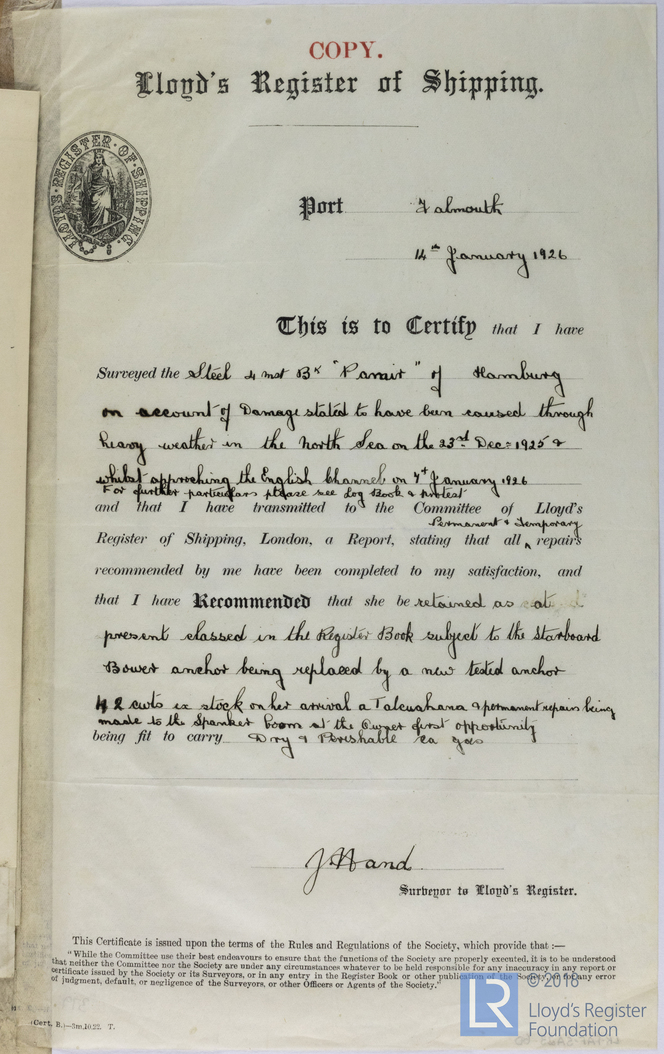 COPY.
Lloyd's Register of Shipping.
LLOYD'S REGISTER OF SHIPPING
Port Falmouth
14th January 1926
This is to Certify that I have
Surveyed the Steel 4 mst Bk "Pamir" of Hamburg
on account of Damage stated to have been caused through
heavy weather in the North Sea on the 23rd Dec= 1925 &
whilst approching the English Channel on 7th January 1926
For further particulars please see Log Book & protest
and that I have transmitted to the Committee of Lloyd's
Permanent & Temporary
Register of Shipping, London, a Report, stating that all repairs
recommended by me have been completed to my satisfaction, and
that I have Recommended that she be retained as at
present classed in the Register Book subject to the Starboard
Bower anchor being replaced by a new tested anchor
42 cwts ex stock on her arrival a Talcuahana & permanent repairs being
made to the Spanker boom at the Owner first opportunity
being fit to carry Dry & Perishable
J Hand
Surveyor to Lloyd's Register.
This Certificate is issued upon the terms of the Rules and Regulations of the Society, which provide that :—
"While the Committee use their best endeavours to ensure that the functions of the Society are properly executed, it is to be understood
that neither the Committee nor the Society are under any circumstances whatever to be held responsible for any inaccuracy in any report or
certificate issued by the Society or its Surveyors, or in any entry in the Register Book or other publication of the Society, or for any error
of judgment, default, or negligence of the Surveyors, or other Officers or Agents of the Society."
(Cert. B.)—3m,10,22. T.
LR
© 2018
Lloyd's Register
Foundation